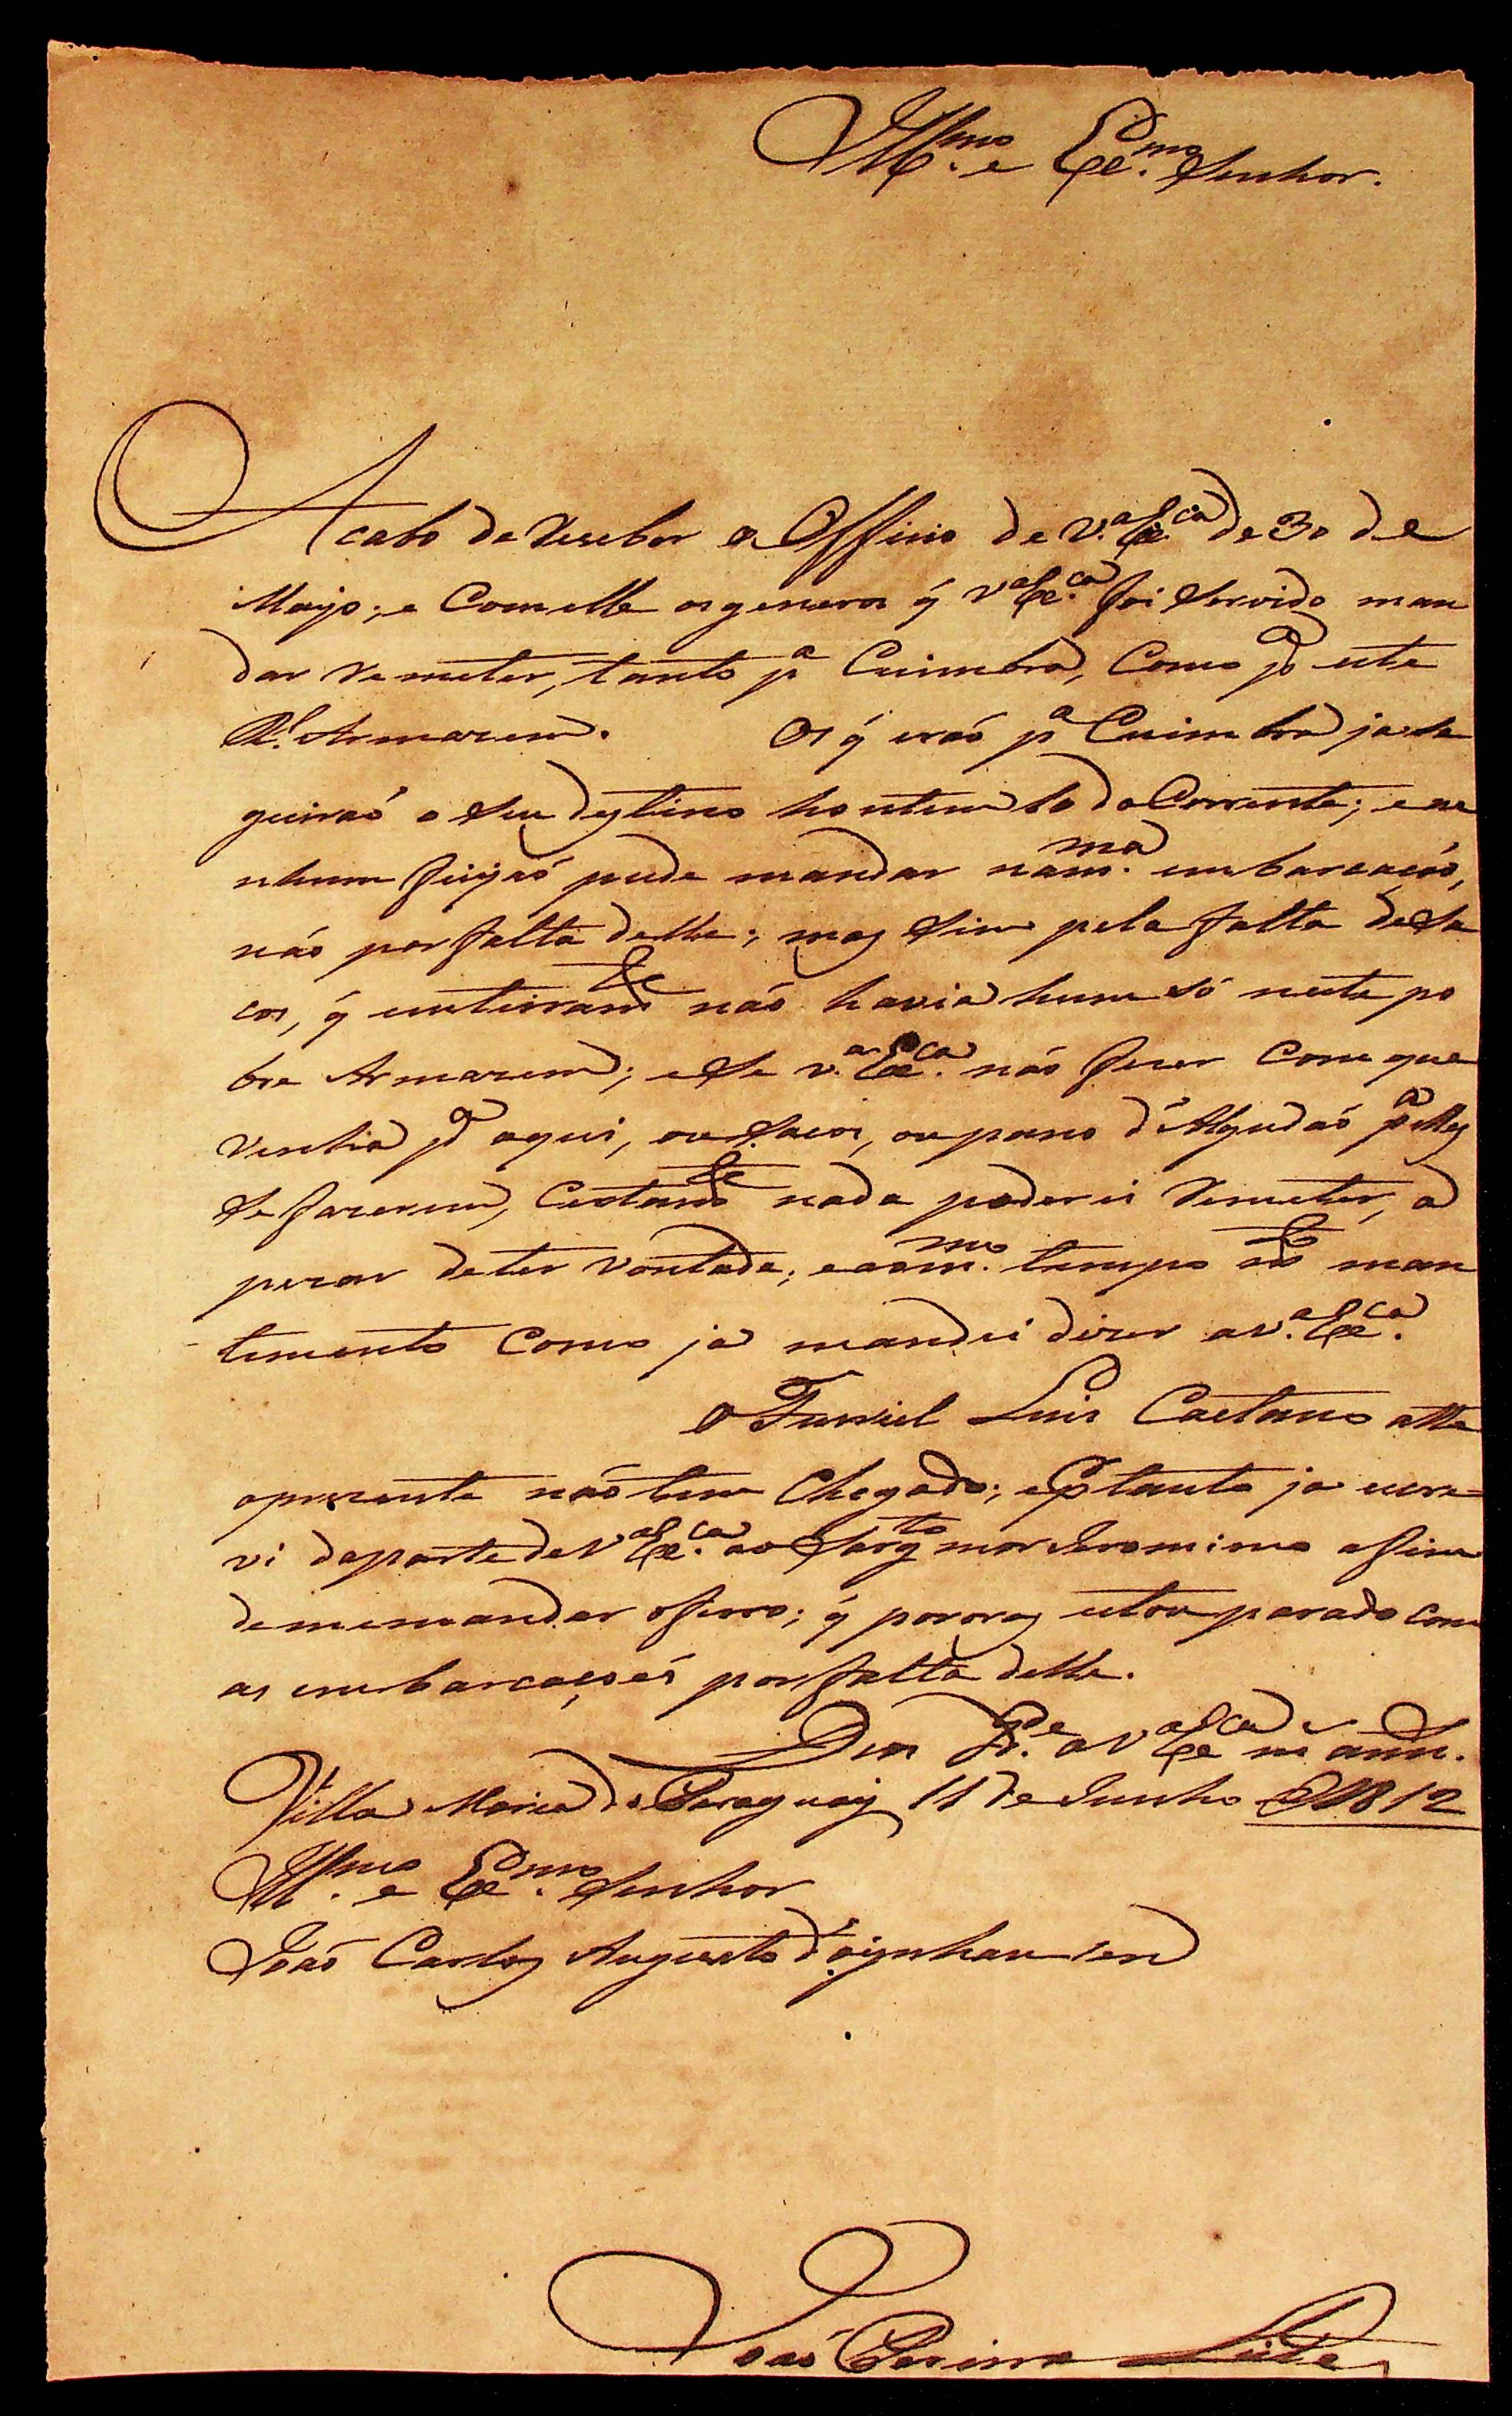 Illmo. e Exmo. Senhor.
Acabo de reseber o Officio de V.a Excia de 30 de
Mayo; e Com elle os generos q̃ V.a Exca. foi Servido man
dar remeter, tanto pa Cuimbra, Como pa este
Rl. Armazem. Os q̃ eraó pa Cuimbra ja se
guiraó o seu destino hontem 10 do Corrente; e ne
nhum feijaó pude mandar nam.ma embarcaçaó,
náo por falta delle; mas sim pela falta de sa
cos, q̃ inteiramte náo havia hum só neste po
bre Armazem; e se V.a Exca. náo fizer com que
venha pa aqui, ou sacos, ou pano d'Algudaó pa elles
se fazerem, Certamte nada poderei remeter, a
pezar de ter vontade; e aom.mo tempo mto man
timento Como ja mandei dizer a V.a Exca.
O Furriel Luis Caetano atte
oprezente náo tem Chegado; e ptanto ja escre=
vi da parte de V.a Exca. ao Sargto mor Jeronimo afim
de me mandar o ferro; q̃ por oras estou parado com
as embarcaçoés por falta delle.
Deos Gde. a V.a Exca ms anns.
Villa Maria do Paraguay 11 de Junho de 1812
Illmo. e Exmo. Senhor
Joaó Carlos Augusto d'Oÿnhausen
Joaó Pereira Leite